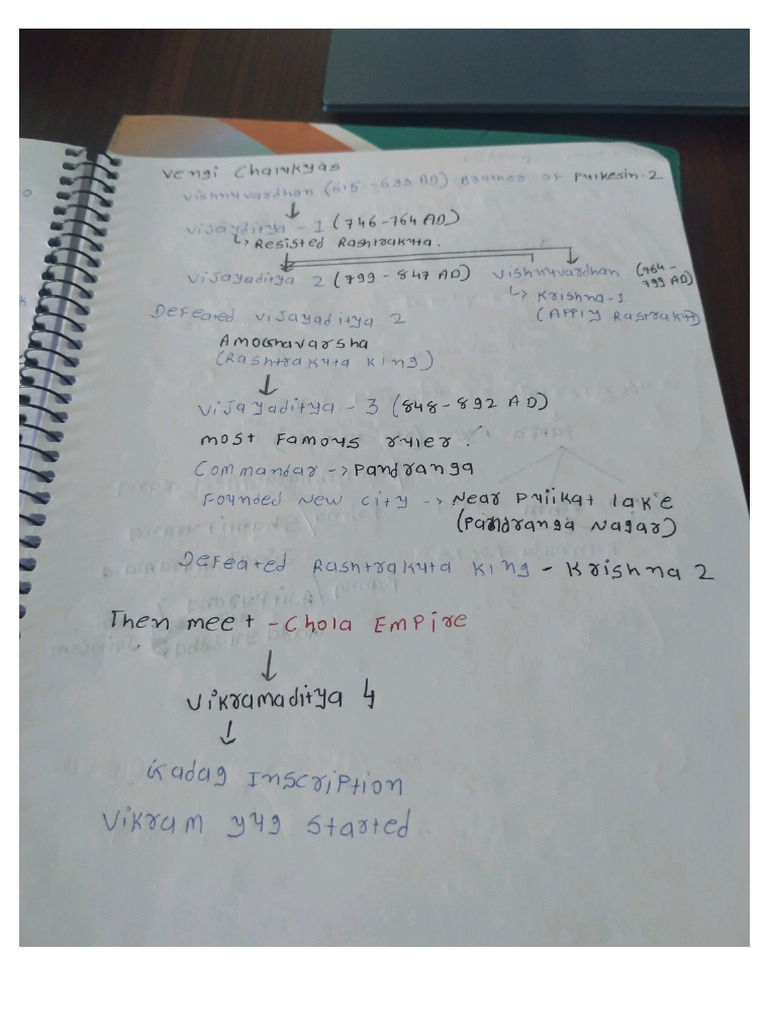 Vengi Chalukyas
Vishnuvardhan (615-633 AD) Brother of Pulkesin-2
Vijayditya - 1 (746-764 AD)
↳ Resisted Rashtrakuta.
Vijayaditya 2 (799-847 AD) Vishnuvardhan (764-799 AD)
↳ Krishna-1
Defeated Vijayaditya 2 (APPly Rastrakut)
Amoghavarsha
(Rashtrakuta King)
Vijayaditya - 3 (848-892 AD)
most Famous ruler.
Commandar -> Pandranga
Founded New City -> Near Pulikat lake
(Pandranga Nagar)
Defeated Rashtrakuta King - Krishna 2
Then meet - Chola Empire
Vikramaditya 4
Gadag Inscription
Vikram yug started